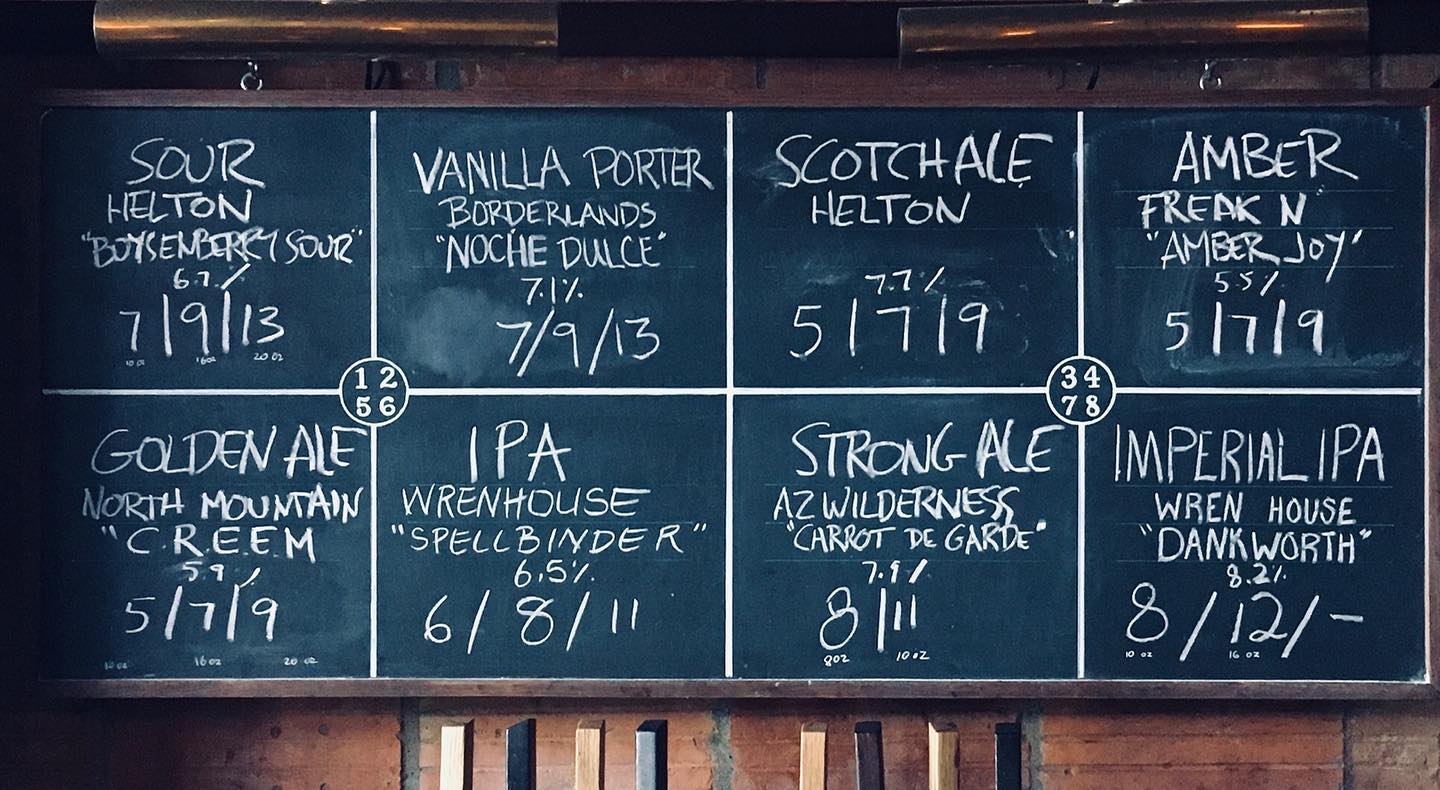 SOUR
HELTON
"BOYSENBERRY SOUR"
6.7%
7|9|13
10 oz 16oz 20 oz
VANILLA PORTER
BORDERLANDS
"NOCHE DULCE"
7.1%
7/9/13
SCOTCH ALE
HELTON
7.7%
5|7|9
AMBER
FREAK N'
"AMBER JOY'
5.5%
5|7|9
1 2
5 6
3 4
7 8
GOLDEN ALE
NORTH MOUNTAIN
"C.R.E.E.M
5.9%
5/7/9
10 oz 16oz 20 oz
IPA
WRENHOUSE
"SPELLBINDER"
6.5%
6/8/11
STRONG ALE
AZ WILDERNESS
"CARROT DE GARDE"
7.9%
8|11
8oz 10oz
IMPERIAL IPA
WREN HOUSE
"DANKWORTH"
8.2%
8/12/-
10 oz 16 oz